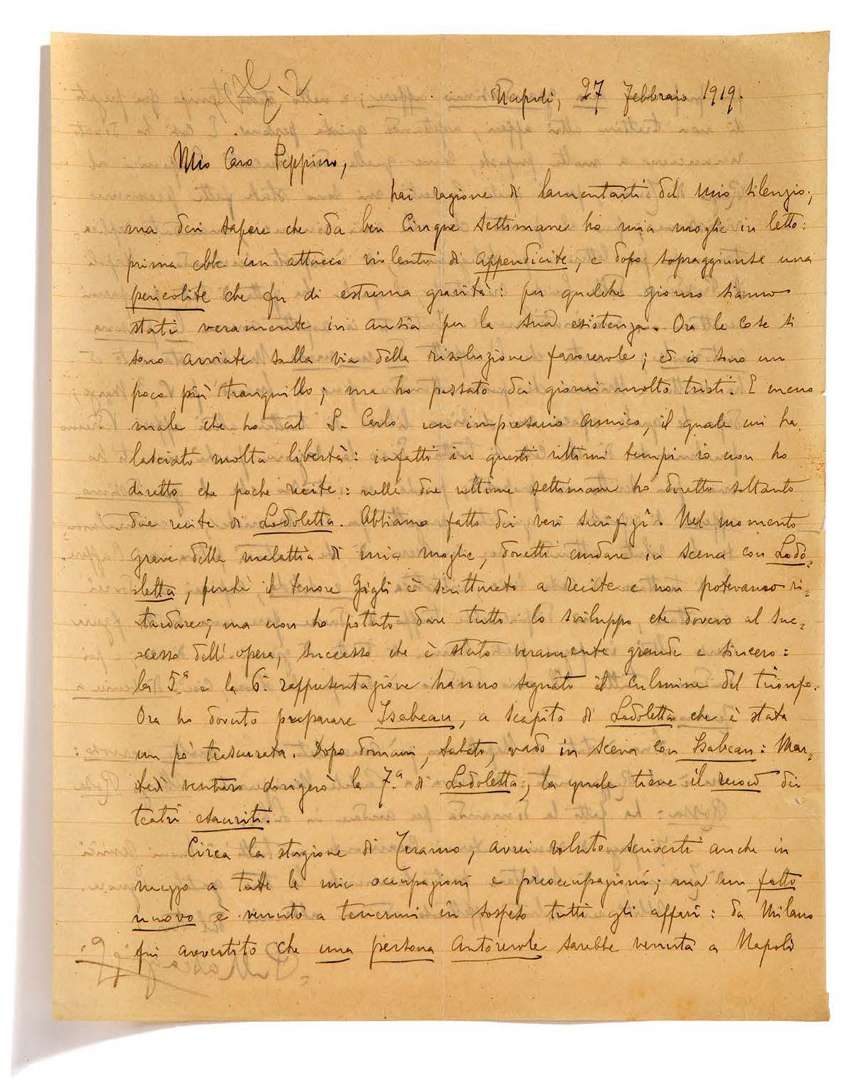 Napoli, 27 Febbraio 1919.
Mio Caro Peppino,
hai ragione di lamentarti del mio silenzio;
ma devi sapere che da ben Cinque settimane ho mia moglie in letto:
prima ebbe un attacco violento di appendicite, e dopo sopraggiunse una
pericolite che fu di estrema gravità: per qualche giorno siamo
stati veramente in ansia per la sua esistenza. Ora le cose si
sono avviate sulla via della risoluzione favorevole; ed io sono un
poco più tranquillo; ma ho passato dei giorni molto tristi. E meno
male che ho al S. Carlo un impresario amico, il quale mi ha
lasciato molta libertà: infatti in questi ultimi tempi io non ho
diretto che poche recite: nelle due ultime settimane ho diretto soltanto
due recite di Lodoletta. Abbiamo fatto dei veri sacrifizî. Nel momento
grave della malattia di mia moglie, dovetti andare in scena con Lodo-
letta, perché il tenore Gigli è scritturato a recite e non potevano ri-
tardare; ma non ho potuto dare tutto lo sviluppo che dovevo al suc-
cesso dell'opera, successo che è stato veramente grande e sincero:
la 5ª e la 6ª rappresentazione hanno segnato il culmine del trionfo.
Ora ho dovuto preparare Isabeau, a scapito di Lodoletta che è stata
un pò trascurata. Dopo domani, sabato, vado in scena con Isabeau: Mar-
tedì venturo dirigerò la 7ª di Lodoletta, la quale tiene il record dei
teatri esauriti.
Circa la stagione di Teramo, avrei voluto scriverti anche in
mezzo a tutte le mie occupazioni e preoccupazioni; ma un fatto
nuovo è venuto a tenermi in sospeso tutti gli affari: da Milano
fui avvertito che una persona autorevole sarebbe venuta a Napoli